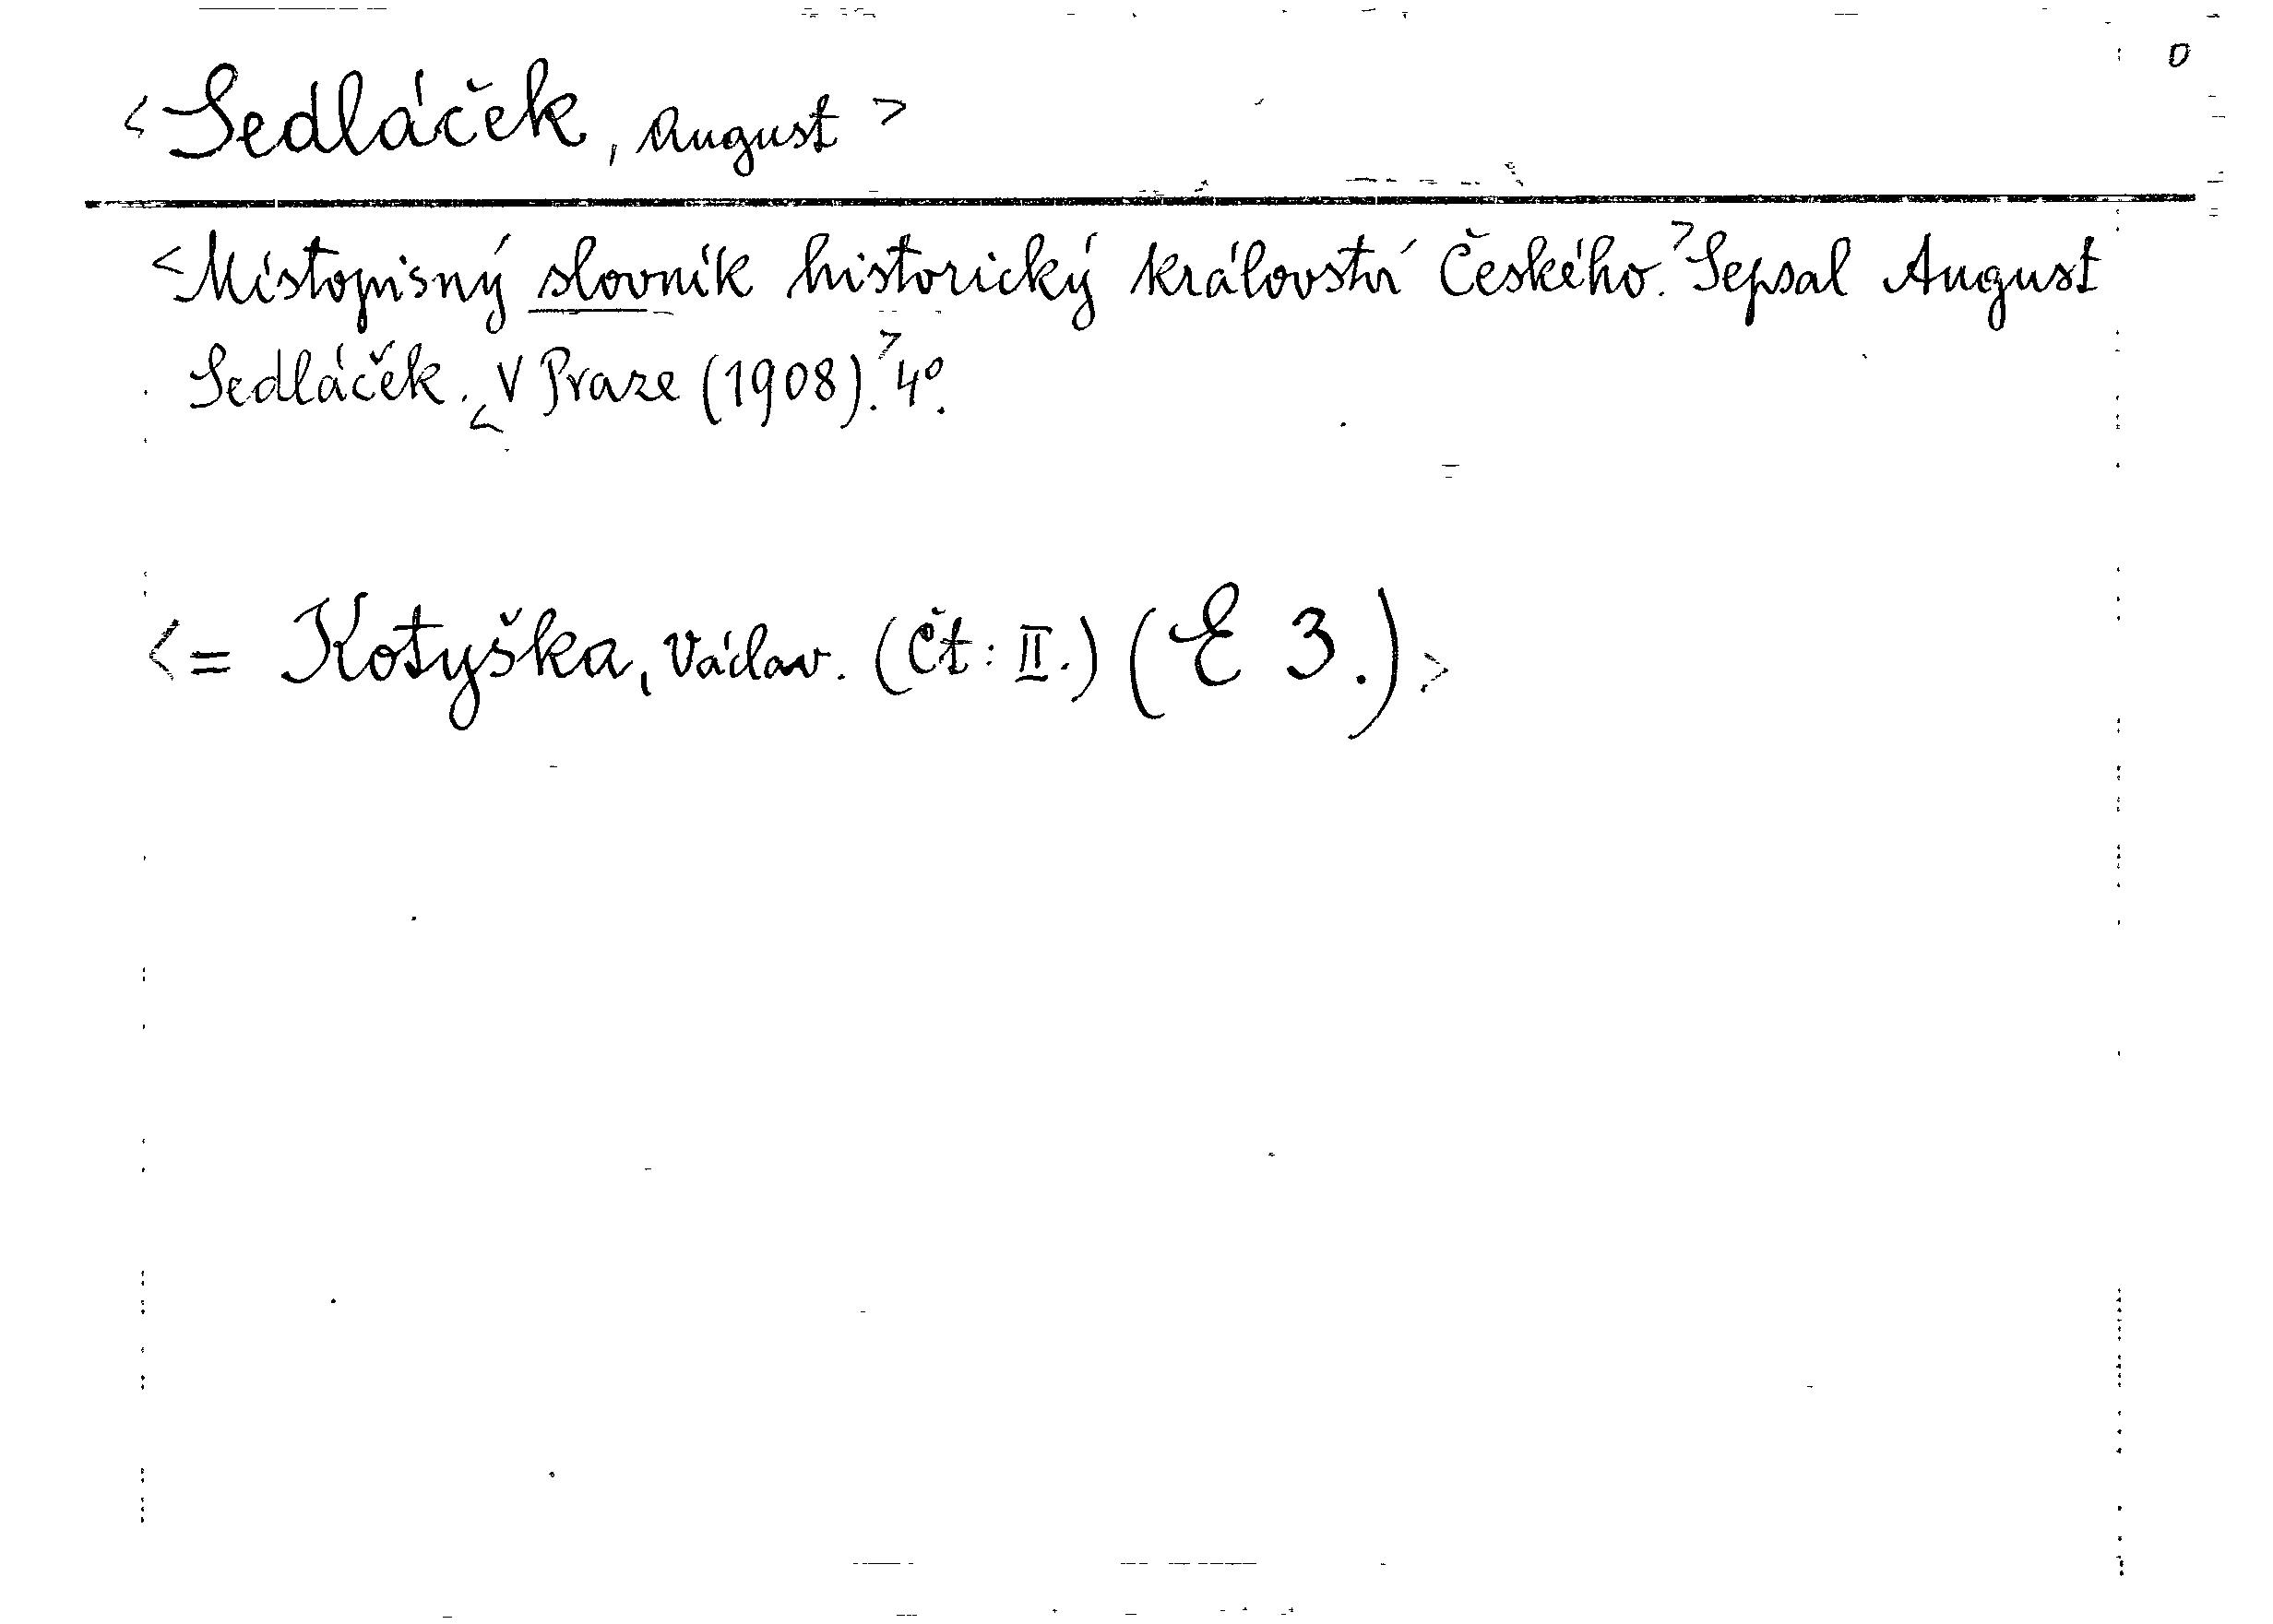 o
<Sedláček, August>
<Místopisný slovník historický království Českého.> Sepsal August
Sedláček. <V Praze (1908).> 4º.
<= Kotyška, Václav. (Čt: II.) (E 3.)>